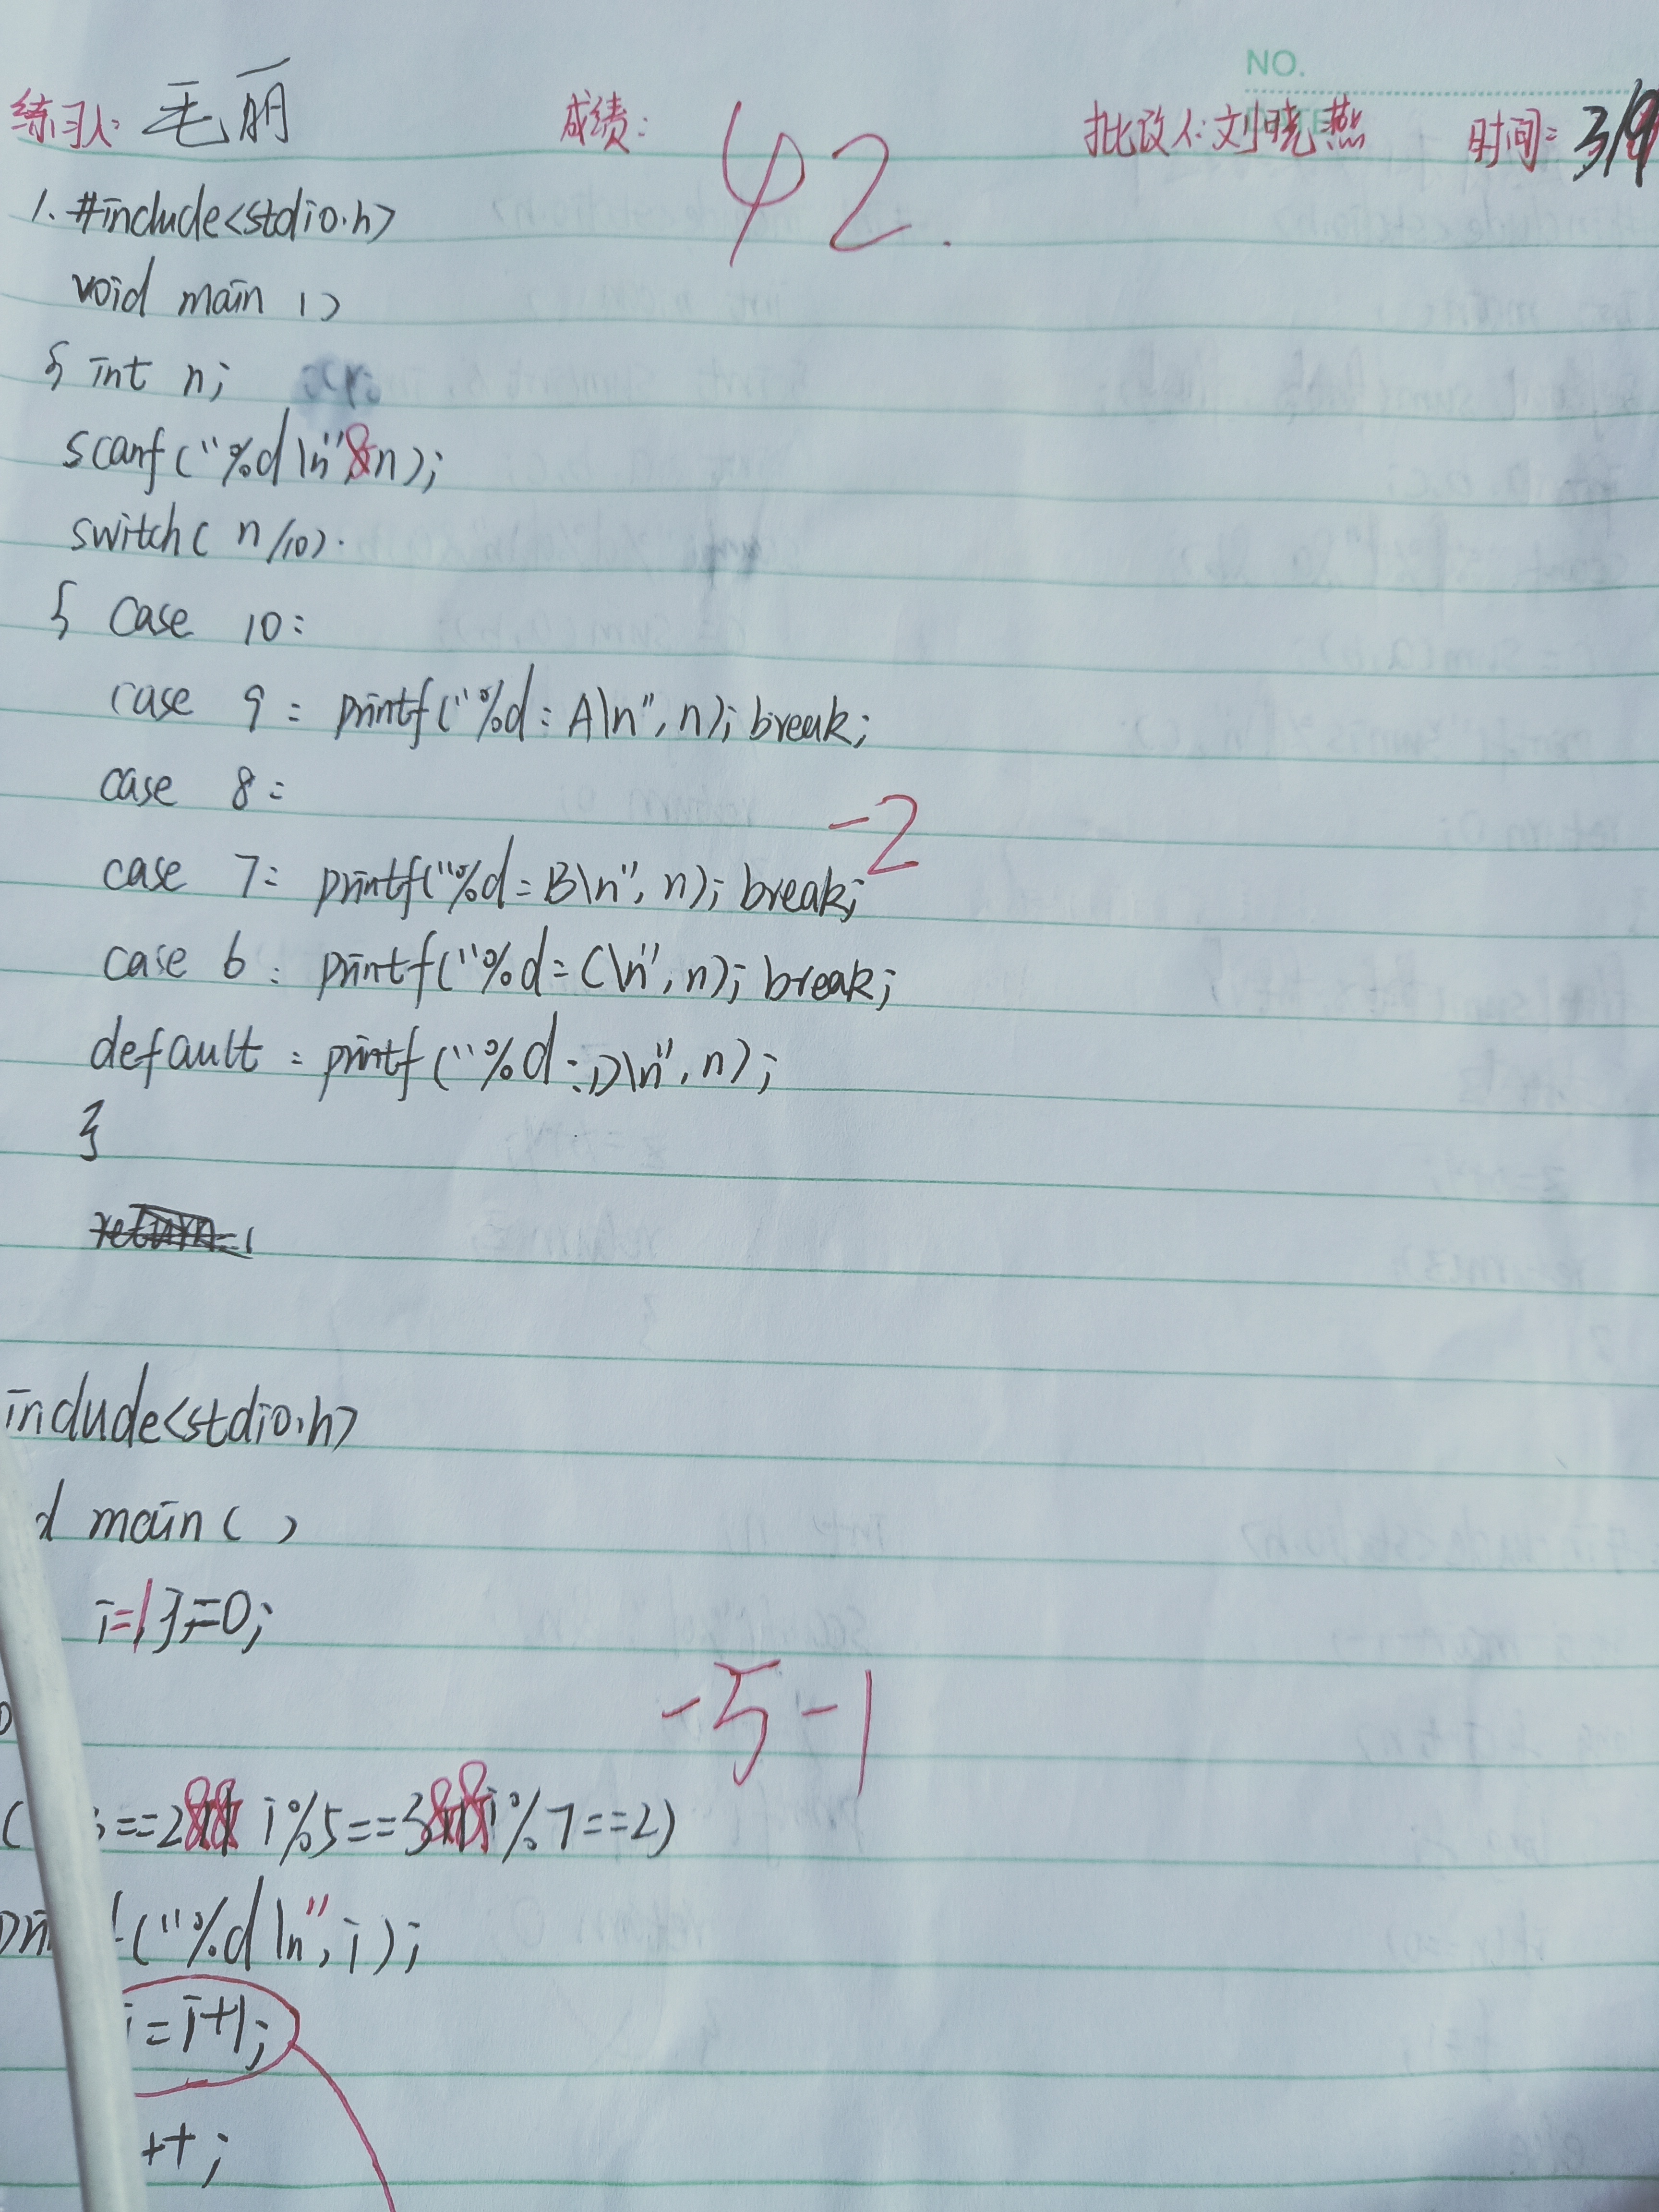 NO.
练习人: 毛丽 成绩: 42. 批改人: 刘晓燕 时间: 3/9
1. #include<stdio.h>
void main ()
{ int n;
scanf("%d\n"&n);
switch( n/10).
{ case 10:
case 9: printf("%d: A\n", n); break;
case 8:
-2
case 7: printf("%d: B\n", n); break;
case 6: printf("%d: C\n", n); break;
default: printf("%d: D\n", n);
}
include<stdio.h>
main( )
i=1, j=0;
-5 -1
==2&& i%5==3&&i%7==2)
("%d\n", i);
=i+1;
++;